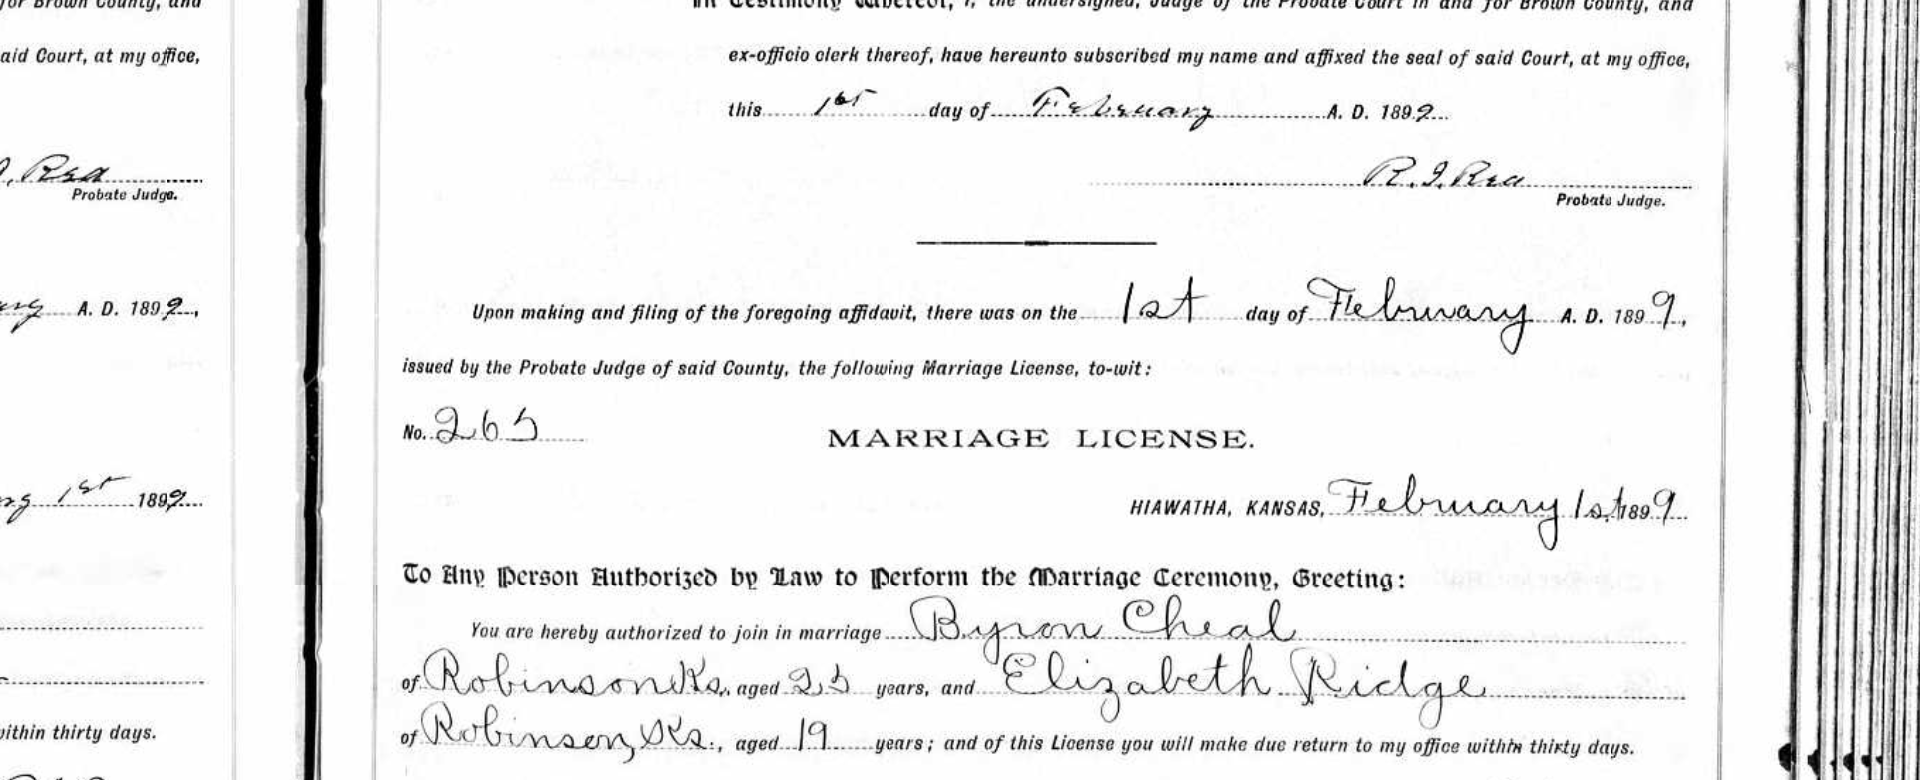 for Brown County, and
aid Court, at my office,
Rea
Probate Judge.
A. D. 1899,
1st 1899
within thirty days.
In Testimony Whereof, I, the undersigned, Judge of the Probate Court in and for Brown County, and
ex-officio clerk thereof, have hereunto subscribed my name and affixed the seal of said Court, at my office,
this 1st day of February A. D. 1899
R. I. Rea
Probate Judge.
Upon making and filing of the foregoing affidavit, there was on the 1st day of February A. D. 1899,
issued by the Probate Judge of said County, the following Marriage License, to-wit:
No. 265
MARRIAGE LICENSE.
HIAWATHA, KANSAS, February 1st, 1899
To Any Person Authorized by Law to Perform the Marriage Ceremony, Greeting:
You are hereby authorized to join in marriage Byron Cheal
of Robinson Ks., aged 25 years, and Elizabeth Ridge
of Robinson, Ks., aged 19 years; and of this License you will make due return to my office within thirty days.